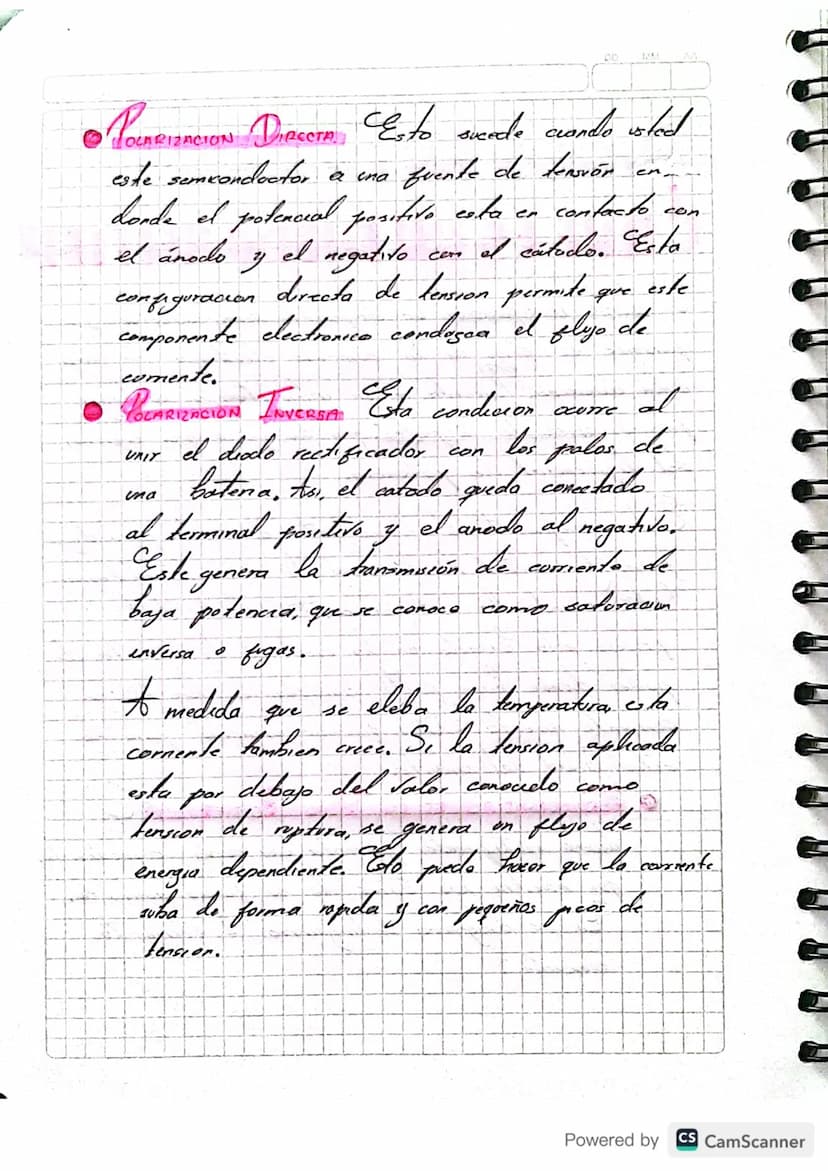 POLARIZACION DIRECTA. Esto sucede cuando usted
este semiconductor a una fuente de tensión en
donde el potencial positivo esta en contacto con
el ánodo y el negativo con el cátodo. Esta
configuracion directa de tension permite que este
componente electronico conduzca el flujo de
corriente.
POLARIZACION INVERSA Esta condicion ocurre al
unir el diodo rectificador con los polos de
una bateria. Asi, el catodo queda conectado
al terminal positivo y el anodo al negativo.
Este genera la transmisión de corriente de
baja potencia, que se conoce como saturacion
inversa o fugas.
A medida que se eleba la temperatura, esta
corriente tambien crece. Si la tension aplicada
esta por debajo del valor conocido como
tension de ruptura, se genera un flujo de
energia dependiente. Esto puede hacer que la corriente
suba de forma rapida y con pequeños picos de
tension.
Powered by CS CamScanner